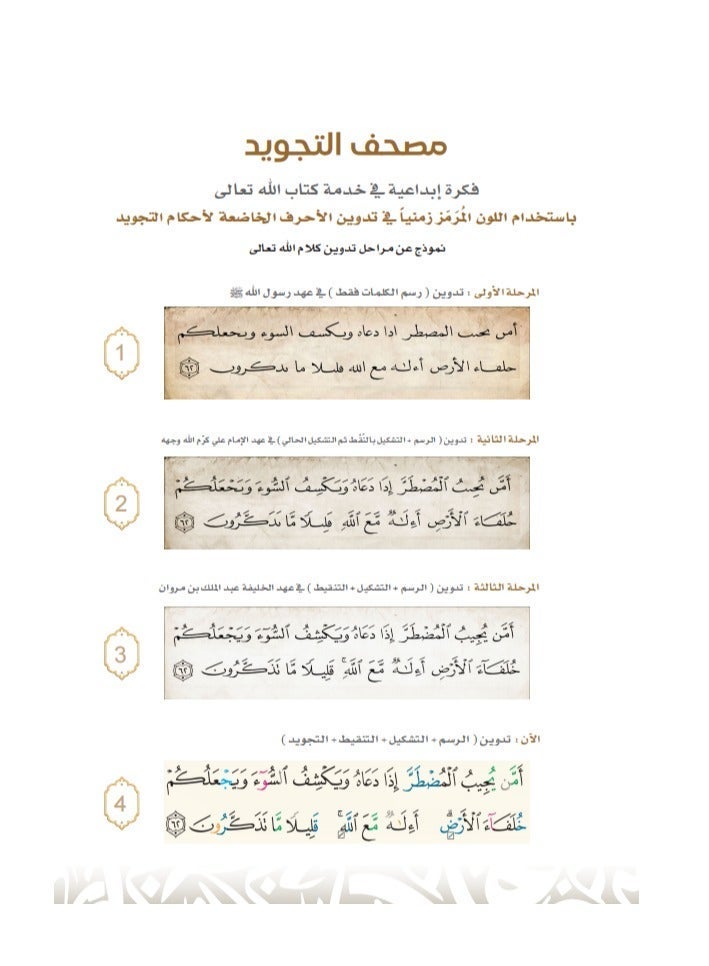 مصحف التجويد
فكرة إبداعية في خدمة كتاب الله تعالى
باستخدام اللون المُرَمّز زمنياً في تدوين الأحرف الخاضعة لأحكام التجويد
نموذج عن مراحل تدوين كلام الله تعالى
المرحلة الأولى : تدوين ( رسم الكلمات فقط ) في عهد رسول الله ﷺ
1
امں ٮحٮٮ المصطر ادا دعاه وٮكسف السوء وٮحعلكم
حلفاء الأرص أءلـٰه مع الله فلىلا ما ٮدكرون ٦٢
المرحلة الثانية : تدوين ( الرسم + التشكيل بالنُقَط ثم التشكيل الحالي ) في عهد الإمام علي كرّم الله وجهه
2
أَمَّں ٮُحِٮٮُ ٱلْمُصْطَرَّ إِدَا دَعَاهُ وَٮَكْسِفُ ٱلسُّوٓءَ وَٮَحْعَلُكُمْ
حُلَفَآءَ ٱلْأَرْصِ أَءِلَـٰهٌ مَّعَ ٱللَّهِ فَلِىلًا مَّا ٮَدَكَّرُونَ ٦٢
المرحلة الثالثة : تدوين ( الرسم + التشكيل + التنقيط ) في عهد الخليفة عبد الملك بن مروان
3
أَمَّن يُجِيبُ ٱلْمُضْطَرَّ إِذَا دَعَاهُ وَيَكْشِفُ ٱلسُّوٓءَ وَيَجْعَلُكُمْ
خُلَفَآءَ ٱلْأَرْضِ أَءِلَـٰهٌ مَّعَ ٱللَّهِ ۚ قَلِيلًا مَّا تَذَكَّرُونَ ٦٢
الآن : تدوين ( الرسم + التشكيل + التنقيط + التجويد )
4
أَمَّن يُجِيبُ ٱلْمُضْطَرَّ إِذَا دَعَاهُ وَيَكْشِفُ ٱلسُّوٓءَ وَيَجْعَلُكُمْ
خُلَفَآءَ ٱلْأَرْضِ ۗ أَءِلَـٰهٌ مَّعَ ٱللَّهِ ۚ قَلِيلًا مَّا تَذَكَّرُونَ ٦٢